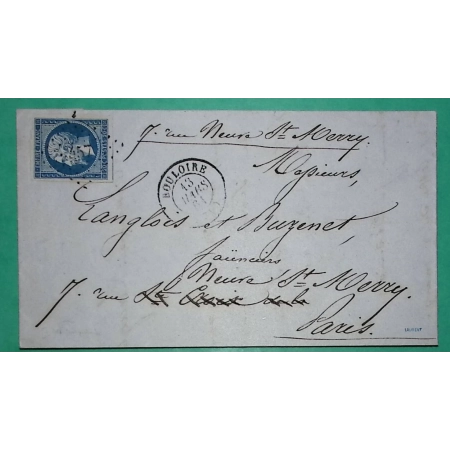 7. rue Neuve St. Merry.
Messieurs,
BOULOIRE
13
MARS
Langlois et Buzenet,
7. rue Neuve St. Merry.
Ste Croix de la
Paris.